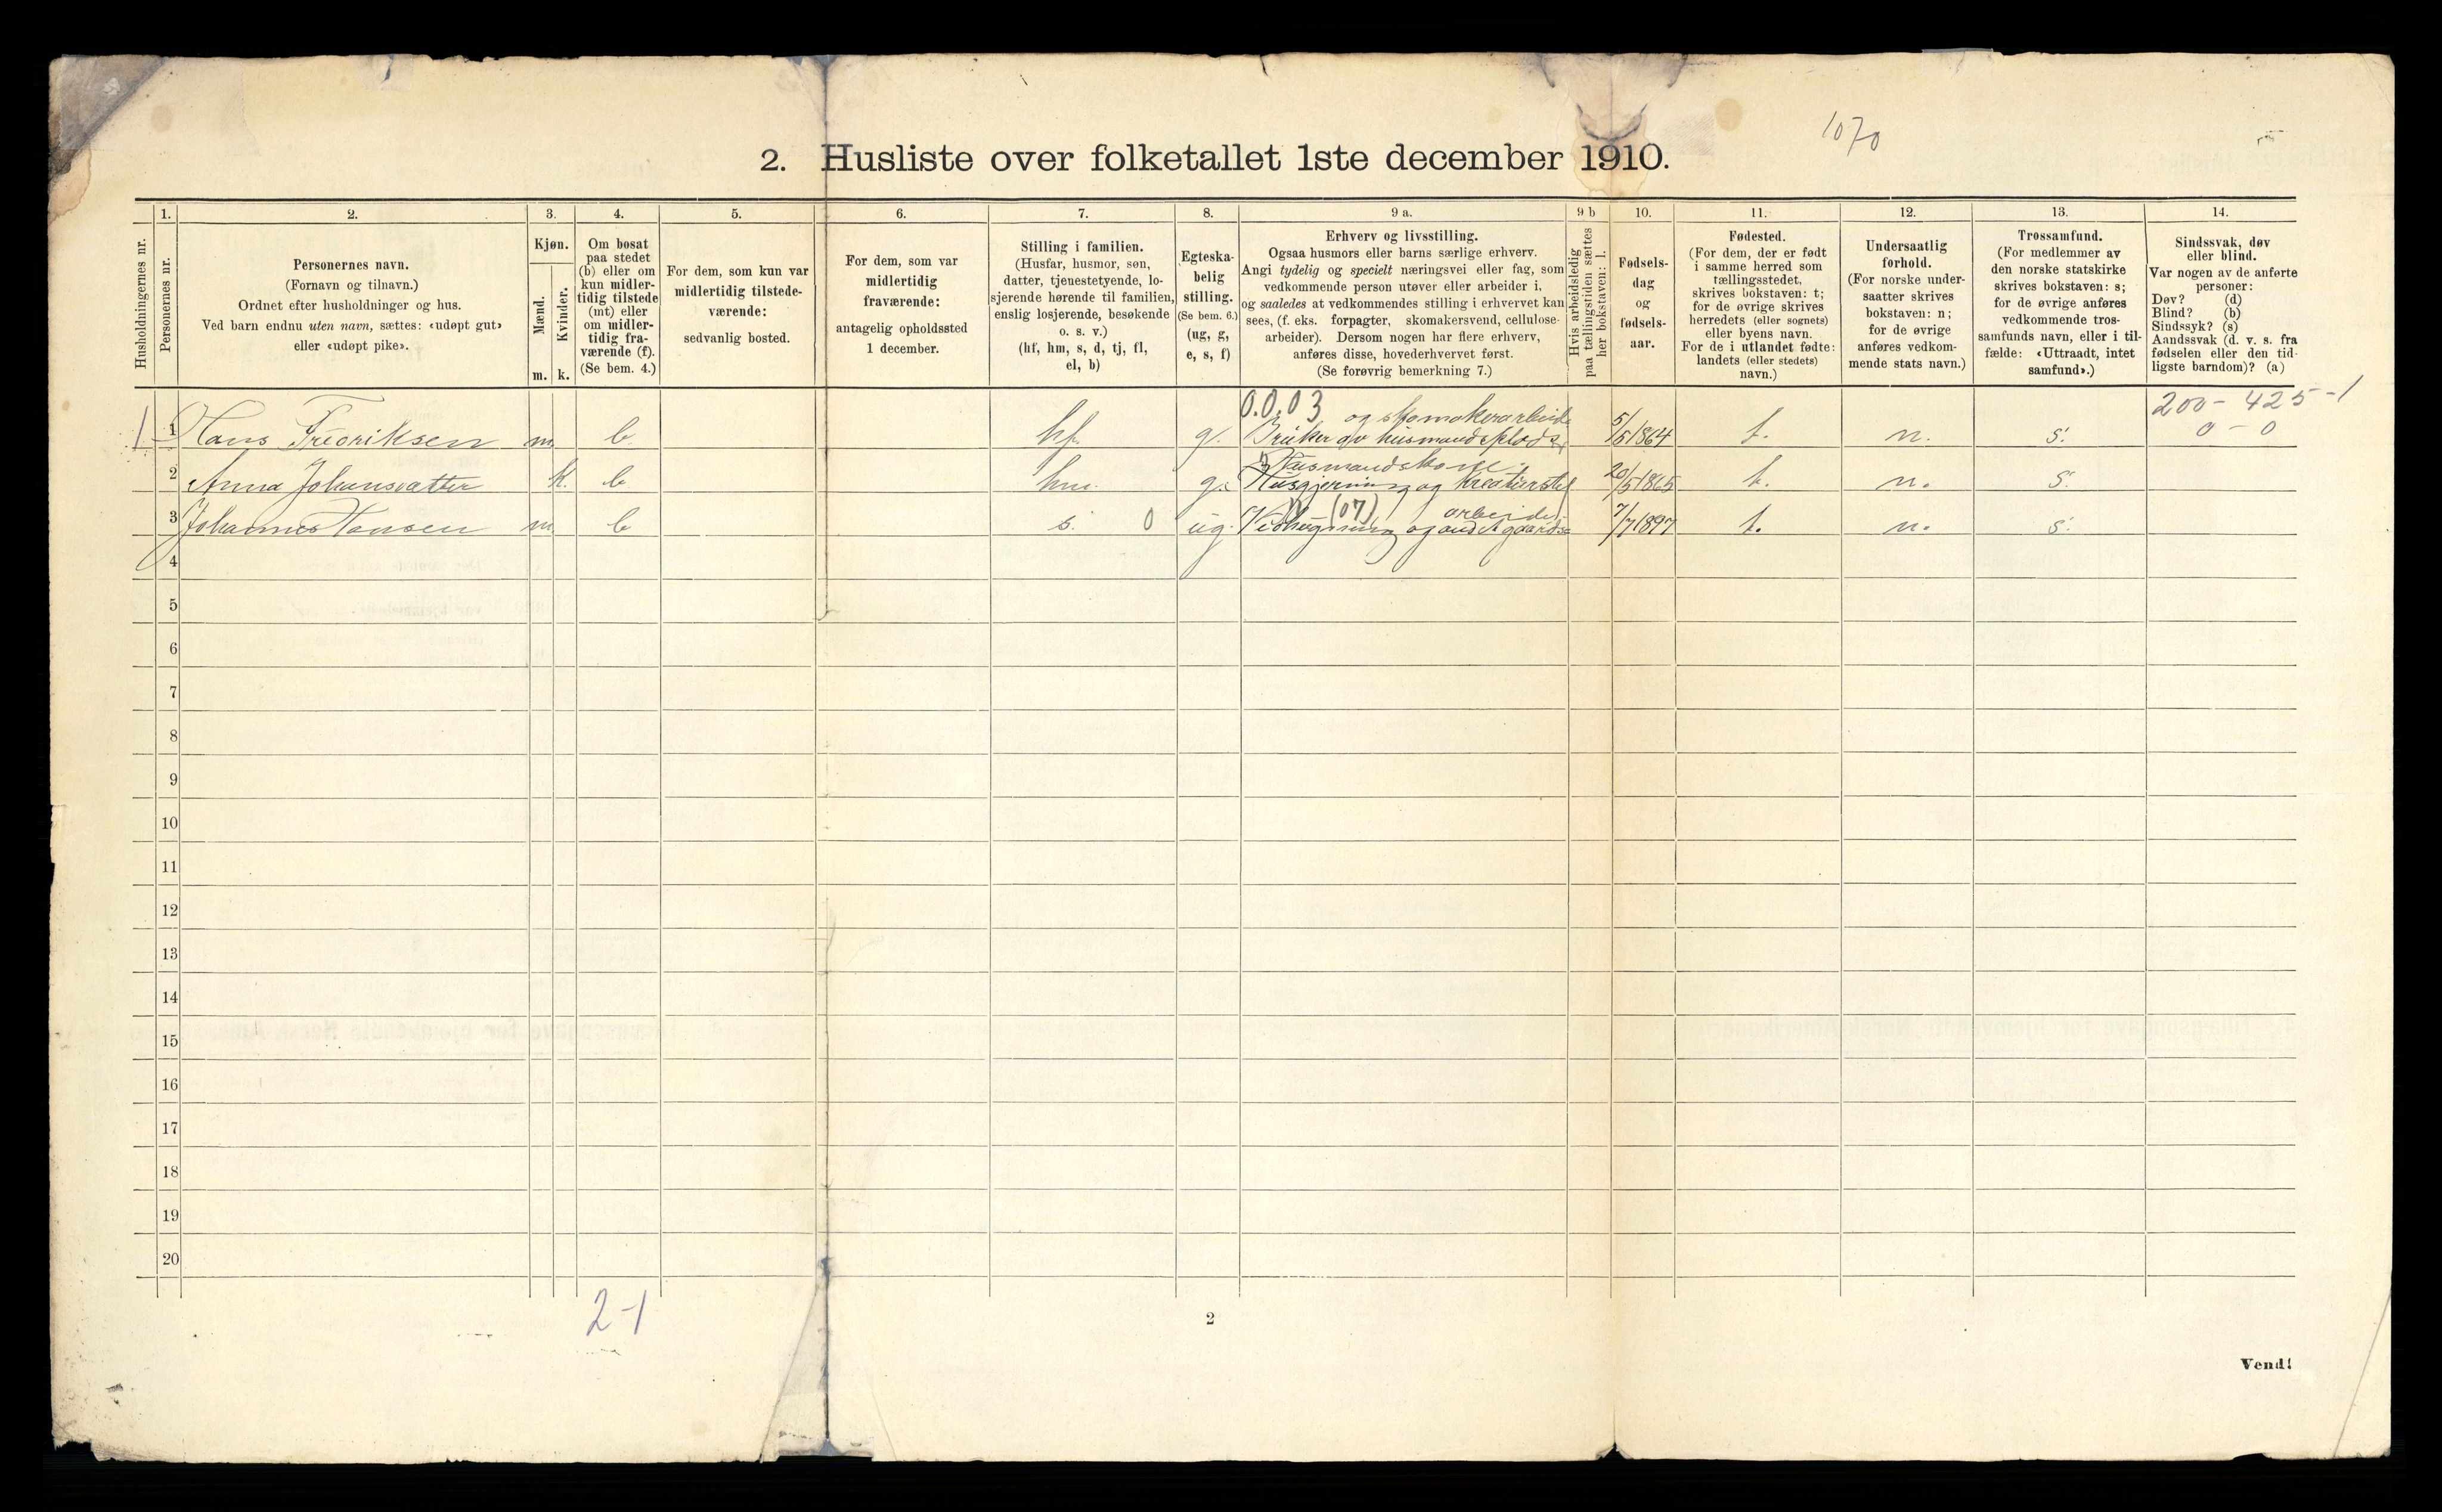 1070
2. Husliste over folketallet 1ste december 1910.
1. 2. 3. 4. 5. 6. 7. 8. 9 a. 9 b 10. 11. 12. 13. 14.
Husholdningernes nr.
Personernes nr.
Personernes navn.
(Fornavn og tilnavn.)
Ordnet efter husholdninger og hus.
Ved barn endnu uten navn, sættes: «udøpt gut»
eller «udøpt pike».
Kjøn.
Mænd.
Kvinder.
m. k.
Om bosat
paa stedet
(b) eller om
kun midler-
tidig tilstede
(mt) eller
om midler-
tidig fra-
værende (f).
(Se bem. 4.)
For dem, som kun var
midlertidig tilstede-
værende:
sedvanlig bosted.
For dem, som var
midlertidig
fraværende:
antagelig opholdssted
1 december.
Stilling i familien.
(Husfar, husmor, søn,
datter, tjenestetyende, lo-
sjerende hørende til familien,
enslig losjerende, besøkende
o. s. v.)
(hf, hm, s, d, tj, fl,
el, b)
Egteska-
belig
stilling.
(Se bem. 6.)
(ug, g,
e, s, f)
Erhverv og livsstilling.
Ogsaa husmors eller barns særlige erhverv.
Angi tydelig og specielt næringsvei eller fag, som
vedkommende person utøver eller arbeider i,
og saaledes at vedkommendes stilling i erhvervet kan
sees, (f. eks. forpagter, skomakersvend, cellulose-
arbeider). Dersom nogen har flere erhverv,
anføres disse, hovederhvervet først.
(Se forøvrig bemerkning 7.)
Hvis arbeidsledig
paa tællingstiden sættes
her bokstaven: l.
Fødsels-
dag
og
fødsels-
aar.
Fødested.
(For dem, der er født
i samme herred som
tællingsstedet,
skrives bokstaven: t;
for de øvrige skrives
herredets (eller sognets)
eller byens navn.
For de i utlandet fødte:
landets (eller stedets)
navn.)
Undersaatlig
forhold.
(For norske under-
saatter skrives
bokstaven: n;
for de øvrige
anføres vedkom-
mende stats navn.)
Trossamfund.
(For medlemmer av
den norske statskirke
skrives bokstaven: s;
for de øvrige anføres
vedkommende tros-
samfunds navn, eller i til-
fælde: «Uttraadt, intet
samfund».)
Sindssvak, døv
eller blind.
Var nogen av de anførte
personer:
Døv? (d)
Blind? (b)
Sindssyk? (s)
Aandssvak (d. v. s. fra
fødselen eller den tid-
ligste barndom)? (a)
0.0.03 og skomakerarbeide 200 - 425 - 1
1 1 Hans Fredriksen m b hf g. Bruker av husmandsplads 5/5 1864 t. n. s. 0 - 0
Husmandskone
2 Anna Johansdatter k. b hm. g. Husgjerning og kreaturstel 20/5 1865 t. n. s.
(07) arbeide
3 Johannes Hansen m b s. 0 ug. Vedhugning og andet gaards- 7/7 1897 t. n. s.
4
5
6
7
8
9
10
11
12
13
14
15
16
17
18
19
20
2-1
2
Vend!